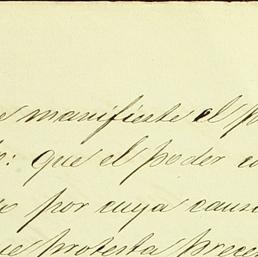 manifieste el
que el poder
por cuya causa
protesta